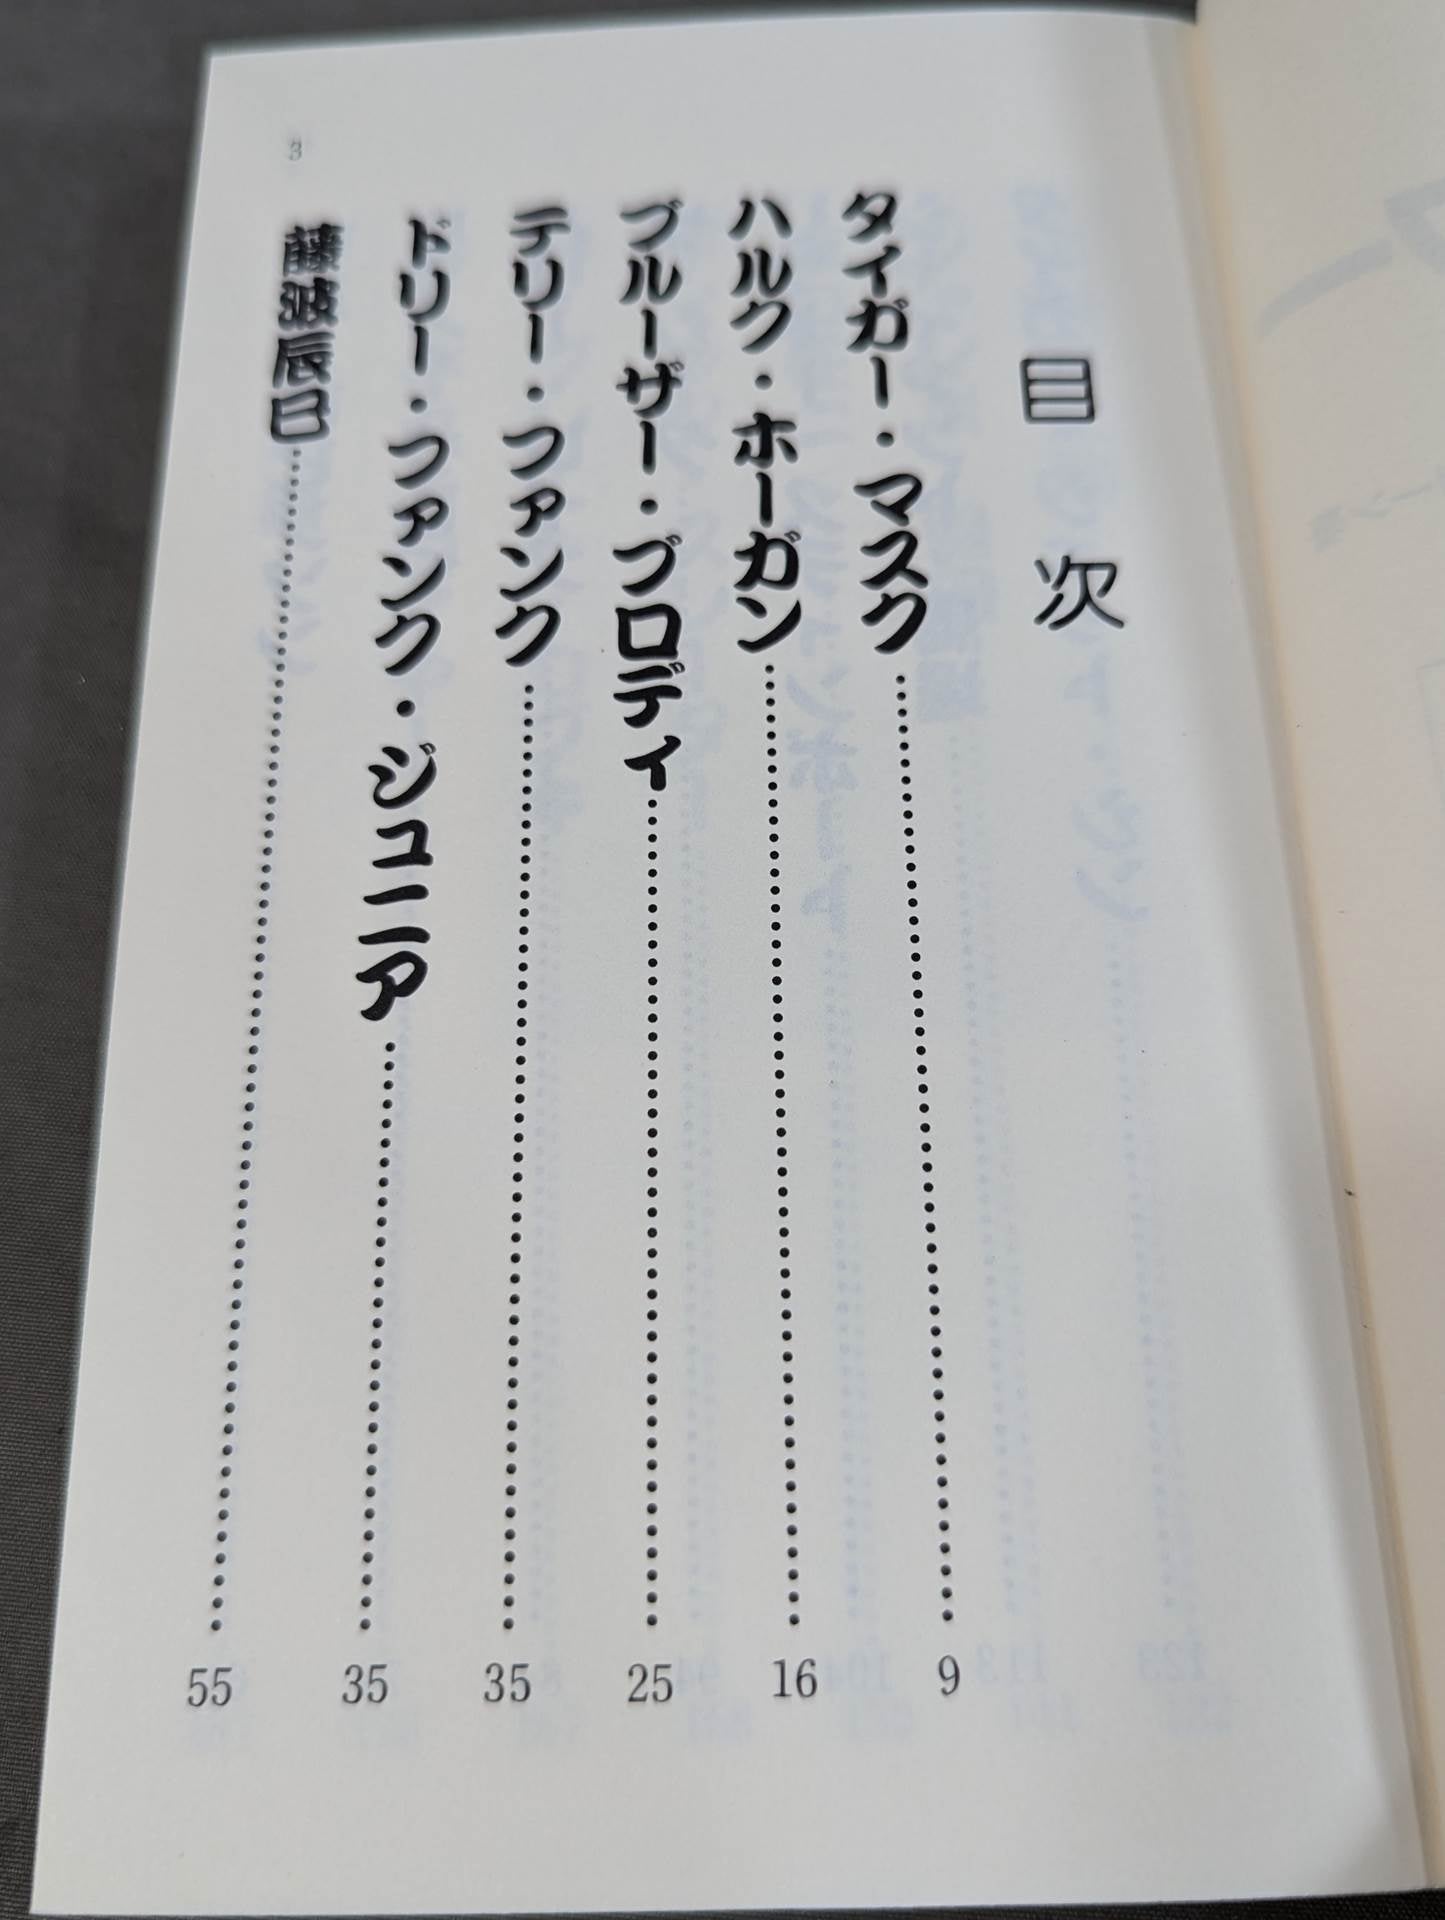 目次
タイガー・マスク…………9
ハルク・ホーガン…………16
ブルーザー・ブロディ…………25
テリー・ファンク…………35
ドリー・ファンク・ジュニア…………35
藤波辰巳…………55
3